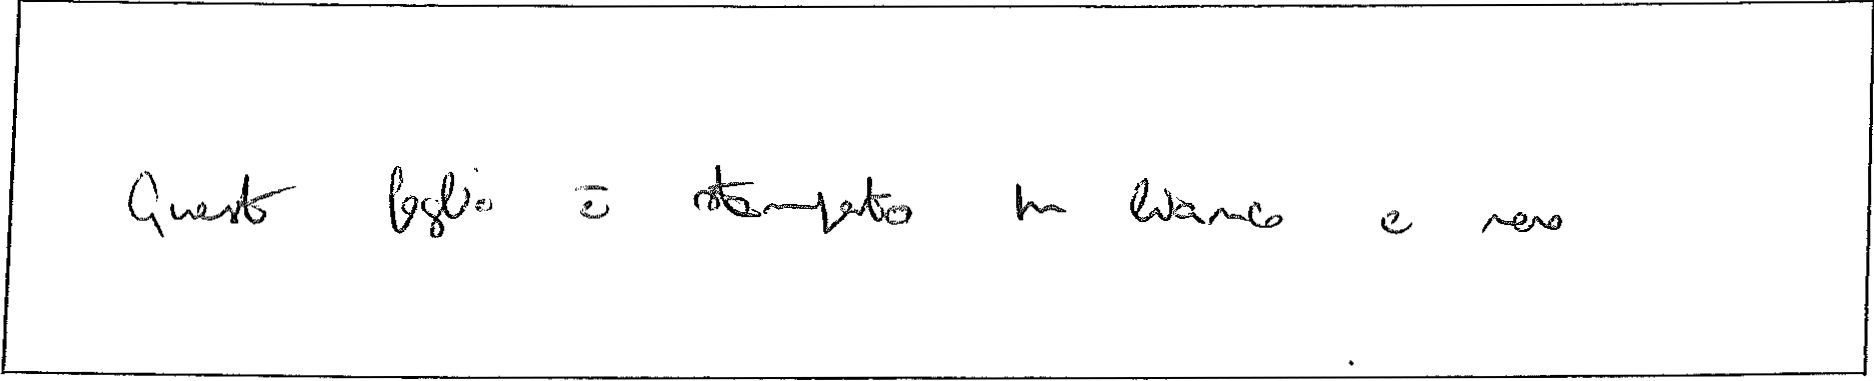 Questo foglio è stampato in bianco e nero